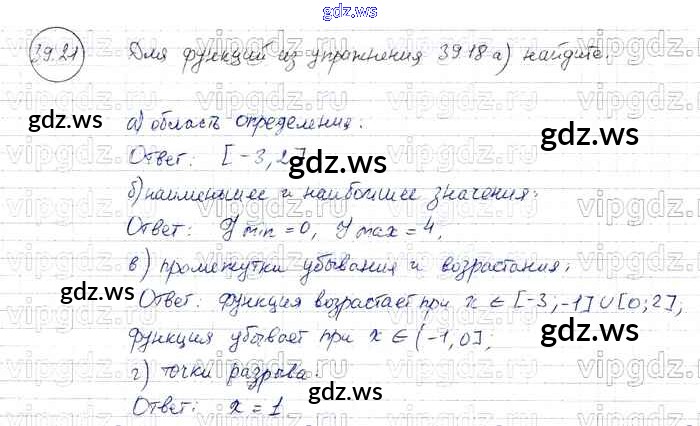 gdz.ws
39.21 Для функции из упражнения 39.18 а) найдите:
gdz.ws
а) область определения:
gdz.ws
gdz.ws
Ответ: [-3, 2]
gdz.ws
б) наименьшее и наибольшее значения:
Ответ: y min = 0, y max = 4,
gdz.ws
gdz.ws
в) промежутки убывания и возрастания;
Ответ: функция возрастает при x ∈ [-3; -1] ∪ [0; 2],
gdz.ws
функция убывает при x ∈ (-1, 0];
gdz.ws
г) точки разрыва:
gdz.ws
Ответ: x = 1